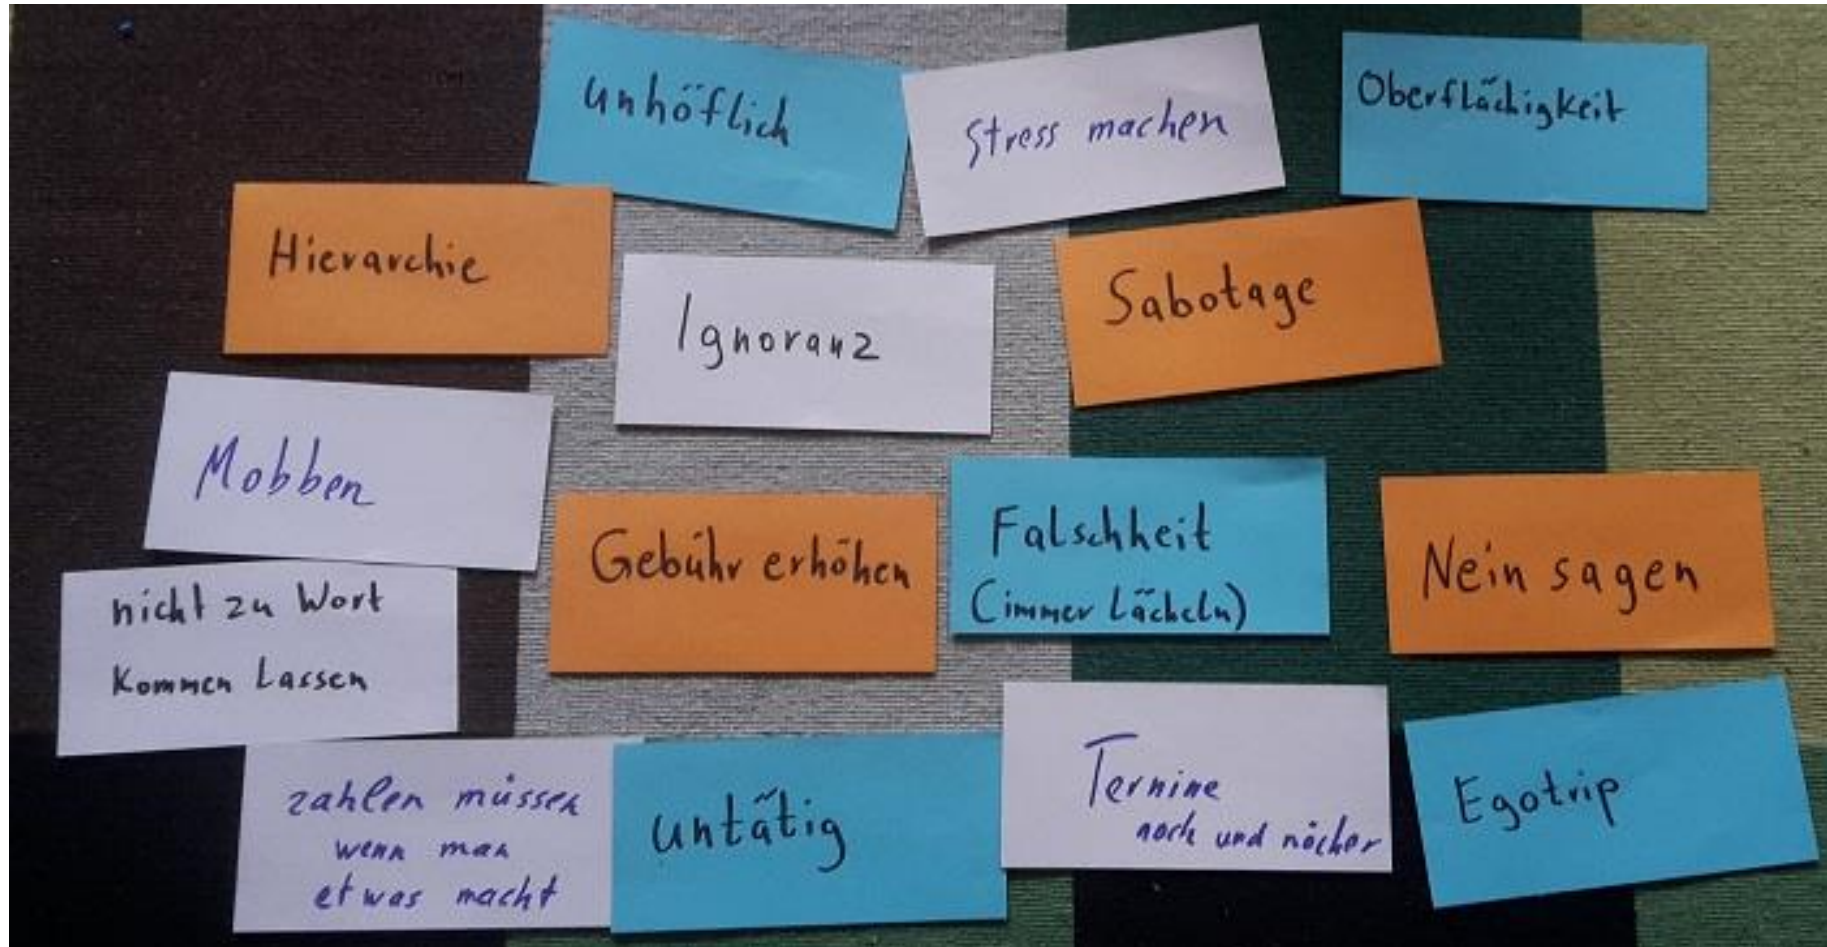 unhöflich
Stress machen
Oberflächigkeit
Hierarchie
Ignoranz
Sabotage
Mobben
Gebühr erhöhen
Falschheit
(immer Lächeln)
Nein sagen
nicht zu Wort
kommen Lassen
zahlen müssen
wenn man
etwas macht
untätig
Termine
noch und nöcher
Egotrip